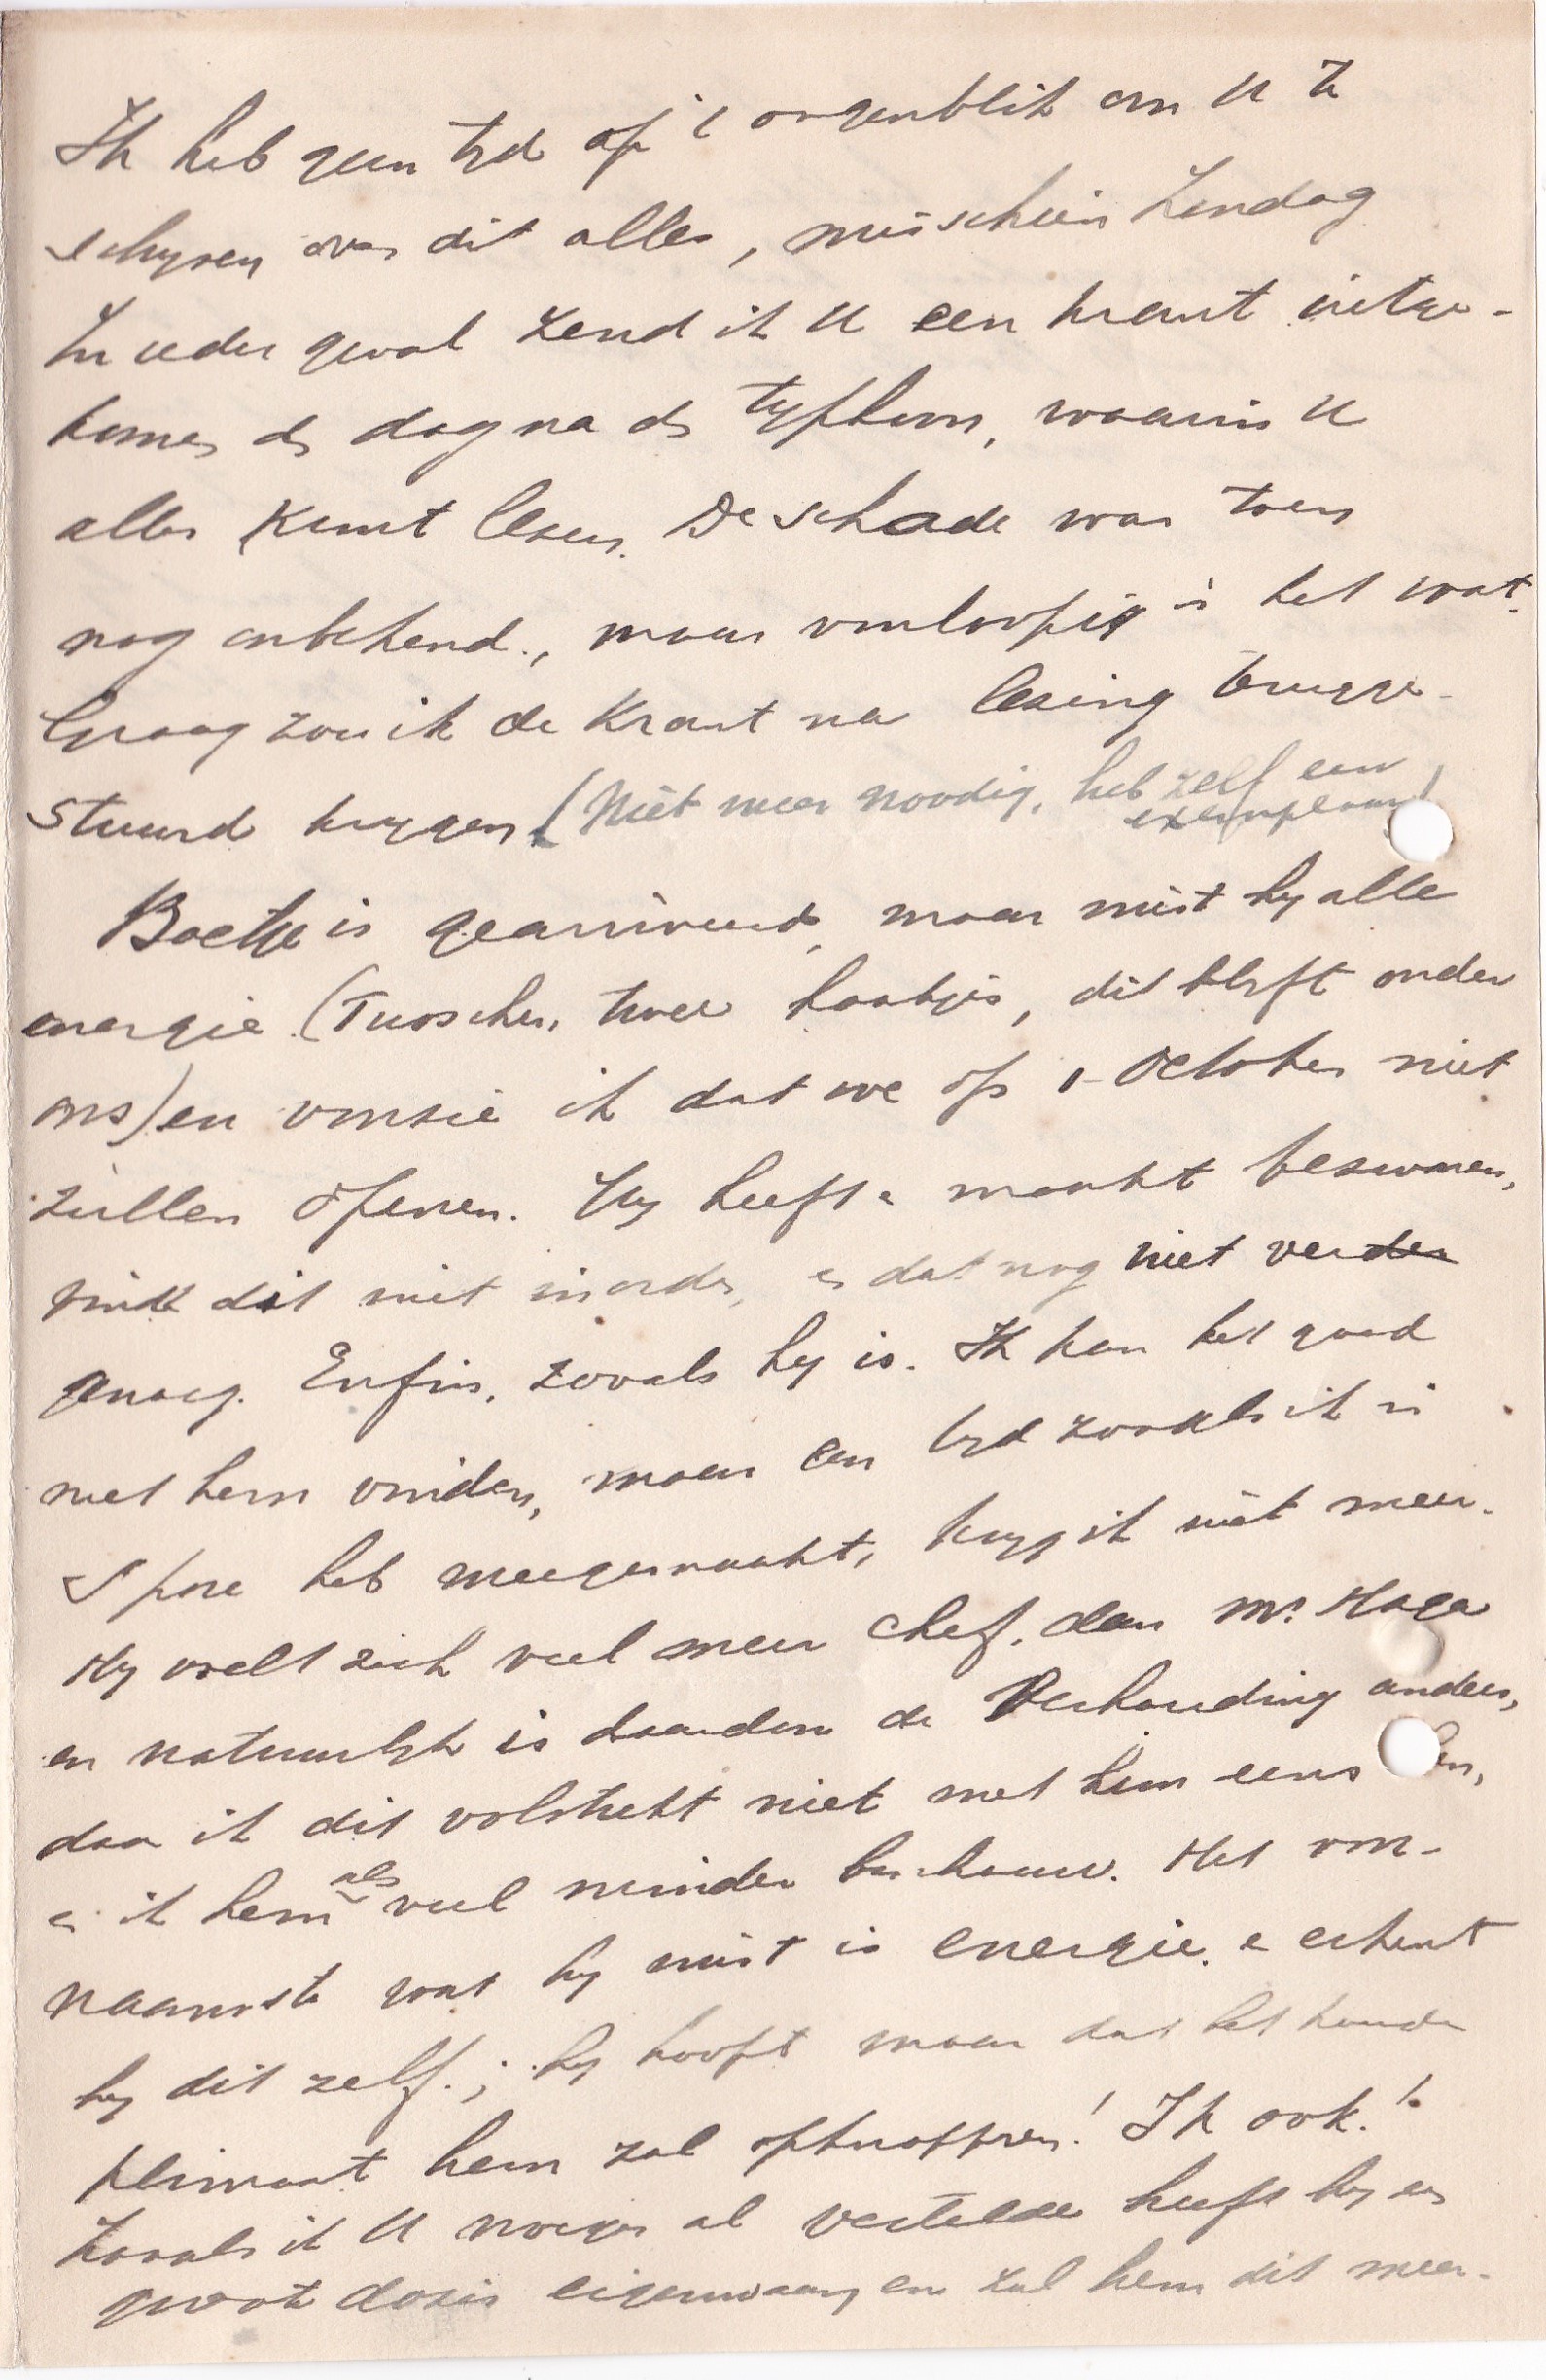 Ik heb geen tyd op 't oogenblik om U te
schryven over dit alles, misschien Zondag
In ieder geval zend ik U een krant uitge-
komen de dag na de typhoon, waarin U
alles kunt lezen. De schade was toen
nog onbekend, maar voorloopig is het wat.
Graag zou ik de Krant na lezing terugge-
stuurd krygen (Niet meer noodig, heb zelf een
exemplaar)
Boetje is gearriveerd, maar mist hy alle
energie (Tusschen twee haakjes, dit blyft onder
ons) en voorzie ik dat we op 1 October niet
zullen openen. Hy heeft & maakt bezwaren,
vindt dit niet in orde, en dat nog niet ver
genoeg. Enfin, zooals hy is. Ik kan het goed
met hem vinden, maar een tyd zooals ik in
S'pore heb meegemaakt, kryg ik niet meer.
Hy voelt zich veel meer chef, dan Mr. Haga
en natuurlyk is daardoor de Verhouding anders,
daar ik dit volstrekt niet met hem eens ben,
en ik hem als veel minder beschouw. Het voor-
naamste wat hy mist is energie, & erkent
hy dit zelf; hy hoopt maar dat het koude
klimaat hem zal opknappen! Ik ook!
Zooals ik U vroeger al vertelde heeft hy een
groote dosis eigenwaan en zal hem dit meer-